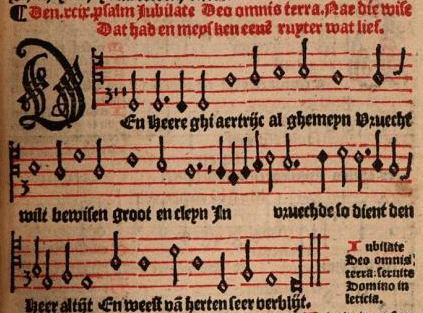 Den.xcix.psalm Jubilate Deo omnis terra. Nae die wise
Dat had en meysken eenē ruyter wat lief.
DEn Heere ghi aertrijc al ghemeyn Vruecht
wilt bewisen groot en cleyn In vruechde so dient den
Heer altijt En weest vā herten seer verblijt.
Iubilate
Deo omnis
terra: seruite
Domino in
leticia.